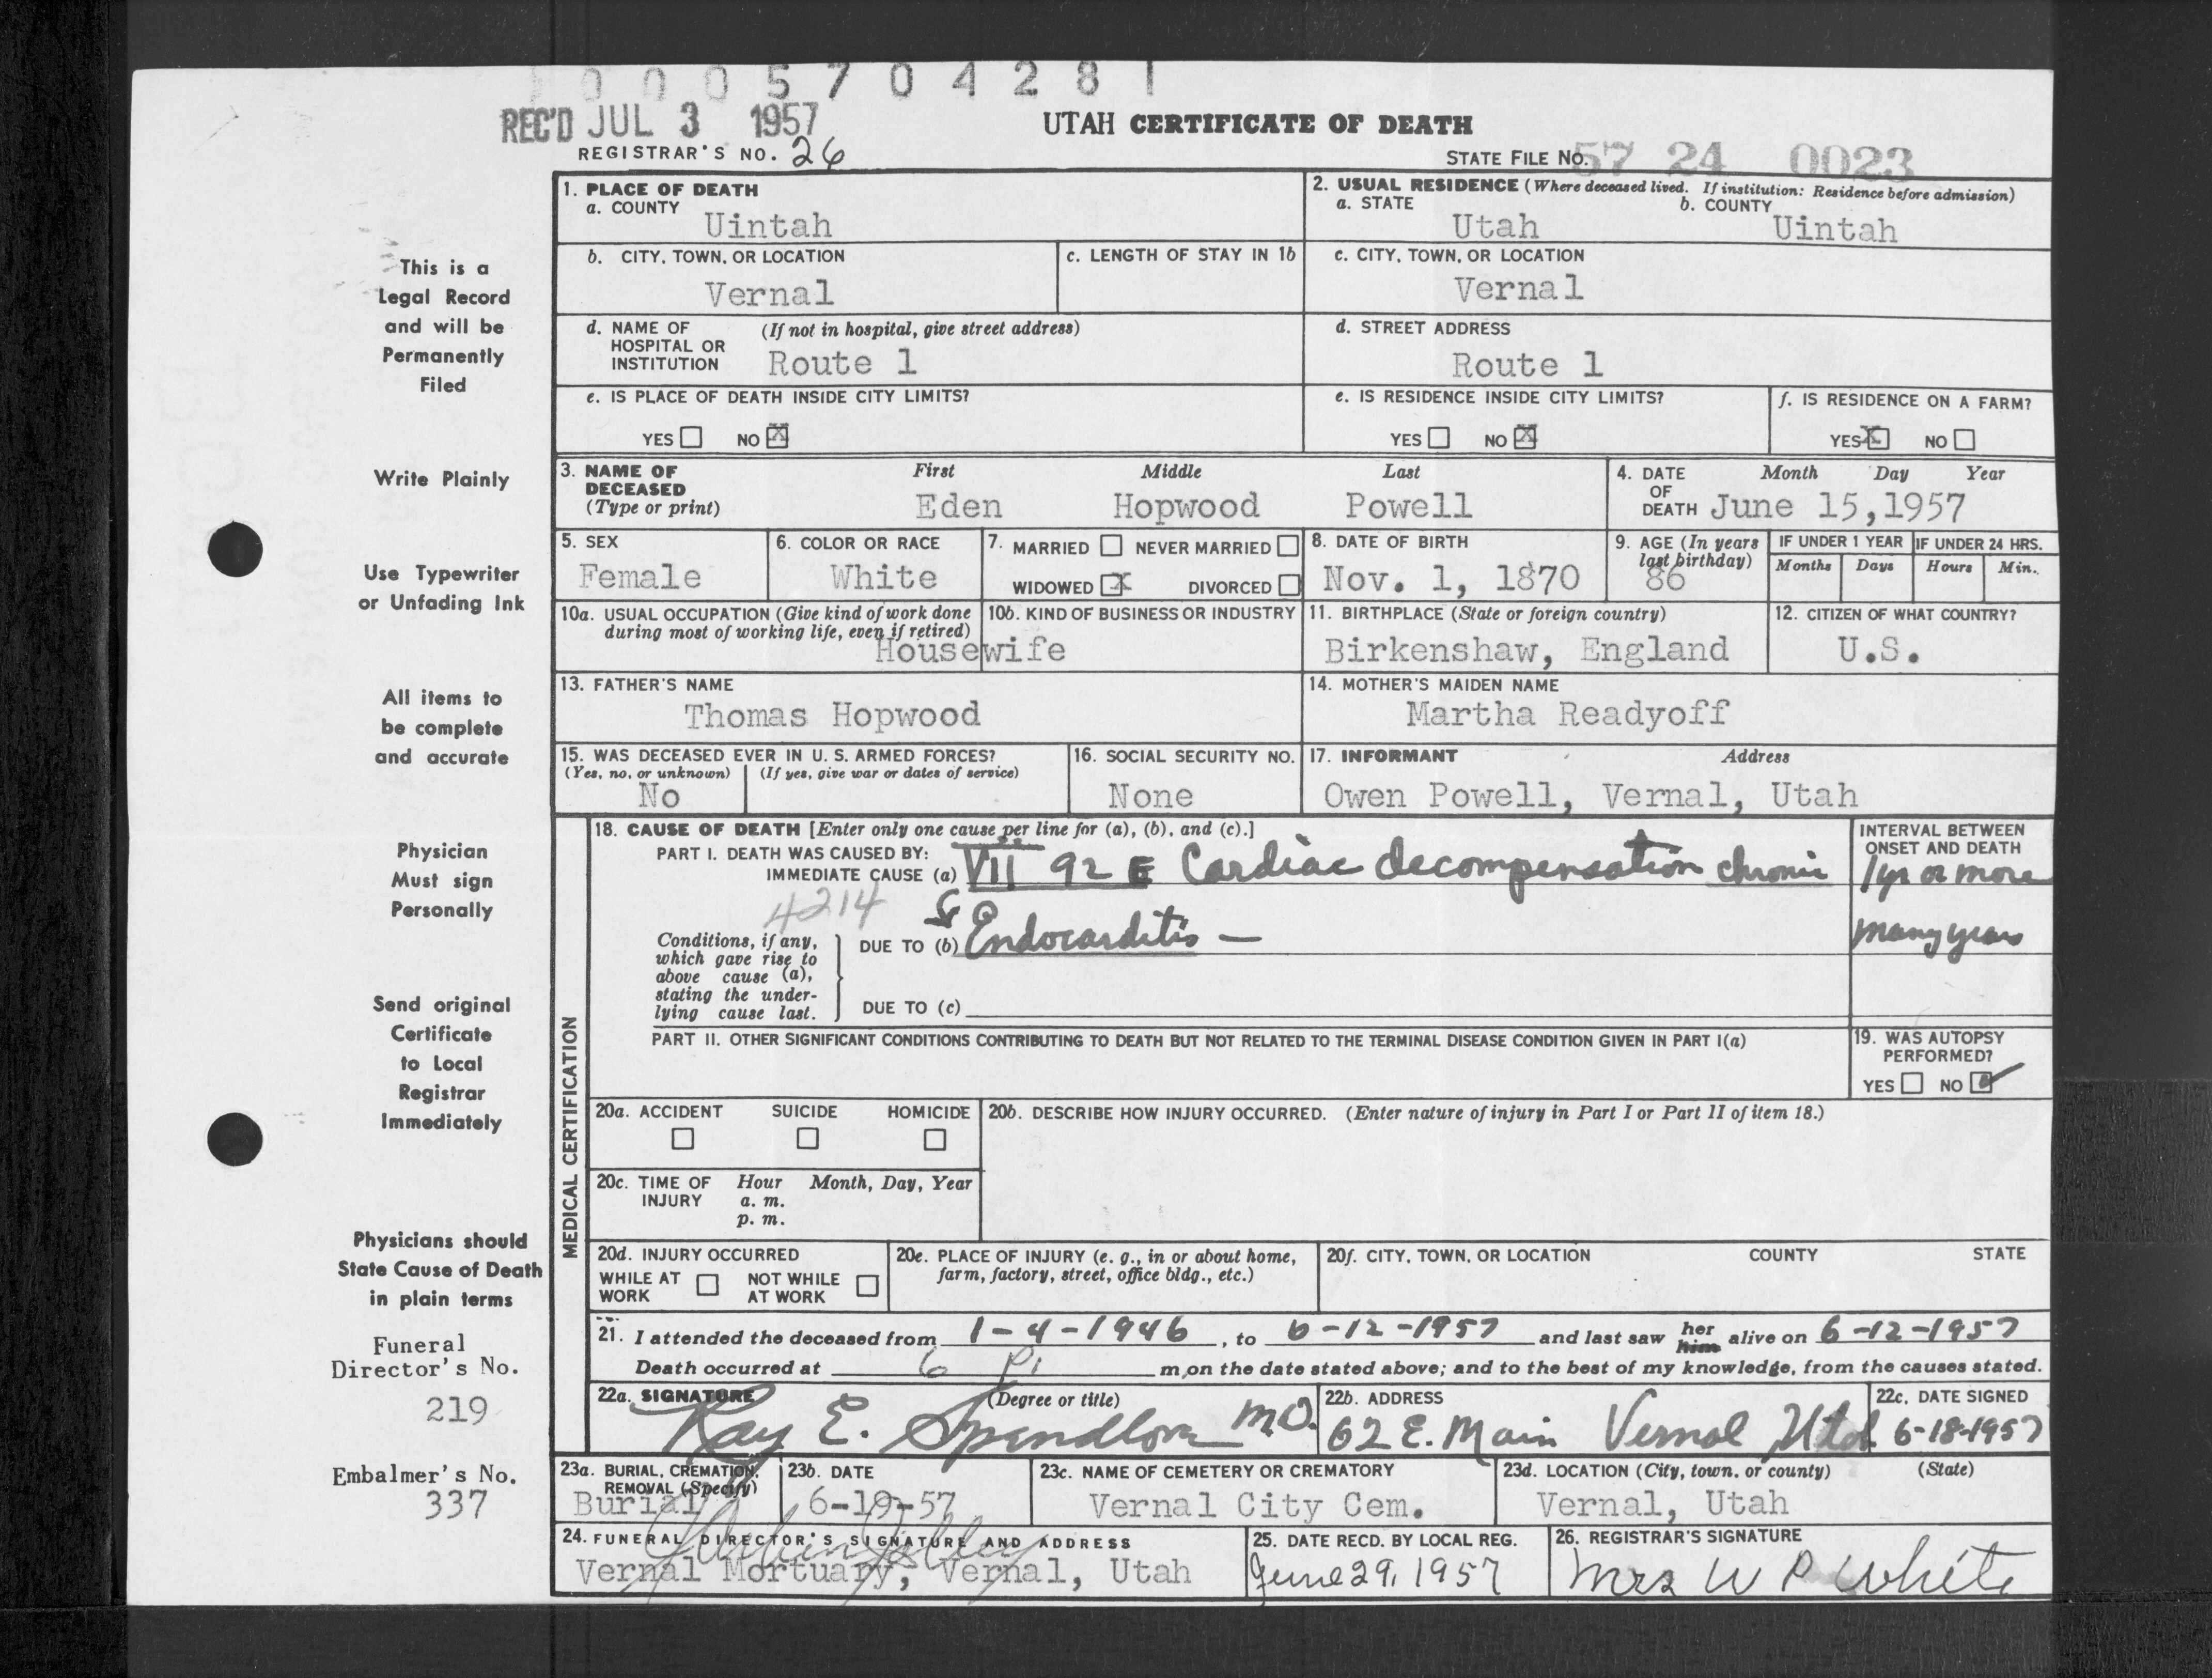 0005704281
REC'D JUL 3 1957
UTAH CERTIFICATE OF DEATH
REGISTRAR'S NO. 26
STATE FILE NO. 57 24 0023
This is a
Legal Record
and will be
Permanently
Filed
Write Plainly
Use Typewriter
or Unfading Ink
All items to
be complete
and accurate
Physician
Must sign
Personally
Send original
Certificate
to Local
Registrar
Immediately
Physicians should
State Cause of Death
in plain terms
Funeral
Director's No.
219
Embalmer's No.
337
1. PLACE OF DEATH
a. COUNTY
Uintah
2. USUAL RESIDENCE (Where deceased lived. If institution: Residence before admission)
a. STATE b. COUNTY
Utah Uintah
b. CITY, TOWN, OR LOCATION
Vernal
c. LENGTH OF STAY IN 1b
c. CITY, TOWN, OR LOCATION
Vernal
d. NAME OF (If not in hospital, give street address)
HOSPITAL OR
INSTITUTION Route 1
d. STREET ADDRESS
Route 1
e. IS PLACE OF DEATH INSIDE CITY LIMITS?
YES NO X
e. IS RESIDENCE INSIDE CITY LIMITS?
YES NO X
f. IS RESIDENCE ON A FARM?
YES X NO
3. NAME OF First Middle Last
DECEASED
(Type or print) Eden Hopwood Powell
4. DATE Month Day Year
OF
DEATH June 15, 1957
5. SEX
Female
6. COLOR OR RACE
White
7. MARRIED NEVER MARRIED
WIDOWED X DIVORCED
8. DATE OF BIRTH
Nov. 1, 1870
9. AGE (In years
last birthday)
86
IF UNDER 1 YEAR IF UNDER 24 HRS.
Months Days Hours Min.
10a. USUAL OCCUPATION (Give kind of work done
during most of working life, even if retired)
10b. KIND OF BUSINESS OR INDUSTRY
Housewife
11. BIRTHPLACE (State or foreign country)
Birkenshaw, England
12. CITIZEN OF WHAT COUNTRY?
U.S.
13. FATHER'S NAME
Thomas Hopwood
14. MOTHER'S MAIDEN NAME
Martha Readyoff
15. WAS DECEASED EVER IN U. S. ARMED FORCES?
(Yes, no, or unknown) (If yes, give war or dates of service)
No
16. SOCIAL SECURITY NO.
None
17. INFORMANT Address
Owen Powell, Vernal, Utah
MEDICAL CERTIFICATION
18. CAUSE OF DEATH [Enter only one cause per line for (a), (b), and (c).]
INTERVAL BETWEEN
ONSET AND DEATH
PART I. DEATH WAS CAUSED BY:
IMMEDIATE CAUSE (a) VII 92 E Cardiac decompensation chronic 1 yr or more
4214
Conditions, if any,
which gave rise to
above cause (a),
stating the under-
lying cause last.
DUE TO (b) Endocarditis — many years
DUE TO (c)
PART II. OTHER SIGNIFICANT CONDITIONS CONTRIBUTING TO DEATH BUT NOT RELATED TO THE TERMINAL DISEASE CONDITION GIVEN IN PART I(a)
19. WAS AUTOPSY
PERFORMED?
YES NO ✓
20a. ACCIDENT SUICIDE HOMICIDE
20b. DESCRIBE HOW INJURY OCCURRED. (Enter nature of injury in Part I or Part II of item 18.)
20c. TIME OF Hour Month, Day, Year
INJURY a. m.
p. m.
20d. INJURY OCCURRED
WHILE AT NOT WHILE
WORK AT WORK
20e. PLACE OF INJURY (e. g., in or about home,
farm, factory, street, office bldg., etc.)
20f. CITY, TOWN, OR LOCATION COUNTY STATE
21. I attended the deceased from 1-4-1946, to 6-12-1957 and last saw her him alive on 6-12-1957
Death occurred at 6 P. m, on the date stated above; and to the best of my knowledge, from the causes stated.
22a. SIGNATURE (Degree or title)
Ray E. Spendlove M.D.
22b. ADDRESS
62 E. Main Vernal Utah
22c. DATE SIGNED
6-18-1957
23a. BURIAL, CREMATION,
REMOVAL (Specify)
Burial
23b. DATE
6-19-57
23c. NAME OF CEMETERY OR CREMATORY
Vernal City Cem.
23d. LOCATION (City, town, or county) (State)
Vernal, Utah
24. FUNERAL DIRECTOR'S SIGNATURE AND ADDRESS
Vernal Mortuary, Vernal, Utah
25. DATE RECD. BY LOCAL REG.
June 29, 1957
26. REGISTRAR'S SIGNATURE
Mrs W P White